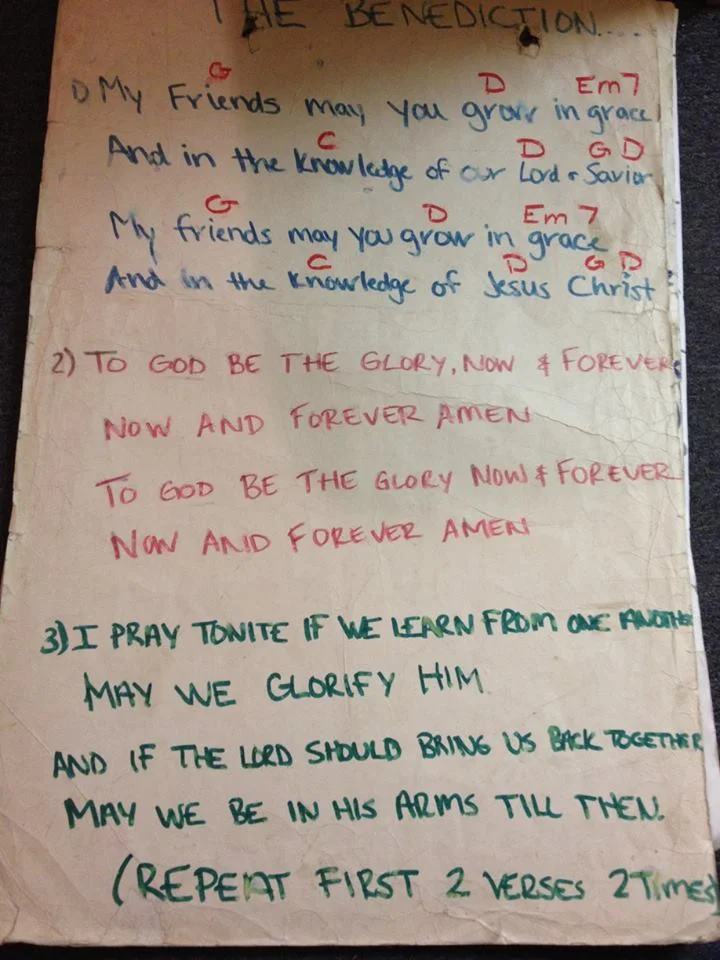 THE BENEDICTION....
G D Em7
1) My Friends may you grow in grace
C D G D
And in the knowledge of our Lord & Savior
G D Em7
My friends may you grow in grace
C D G D
And in the knowledge of Jesus Christ
2) TO GOD BE THE GLORY, NOW & FOREVER
NOW AND FOREVER AMEN
TO GOD BE THE GLORY NOW & FOREVER
NOW AND FOREVER AMEN
3) I PRAY TONITE IF WE LEARN FROM ONE ANOTHE
MAY WE GLORIFY HIM
AND IF THE LORD SHOULD BRING US BACK TOGETHER
MAY WE BE IN HIS ARMS TILL THEN.
(REPEAT FIRST 2 VERSES 2 Times)